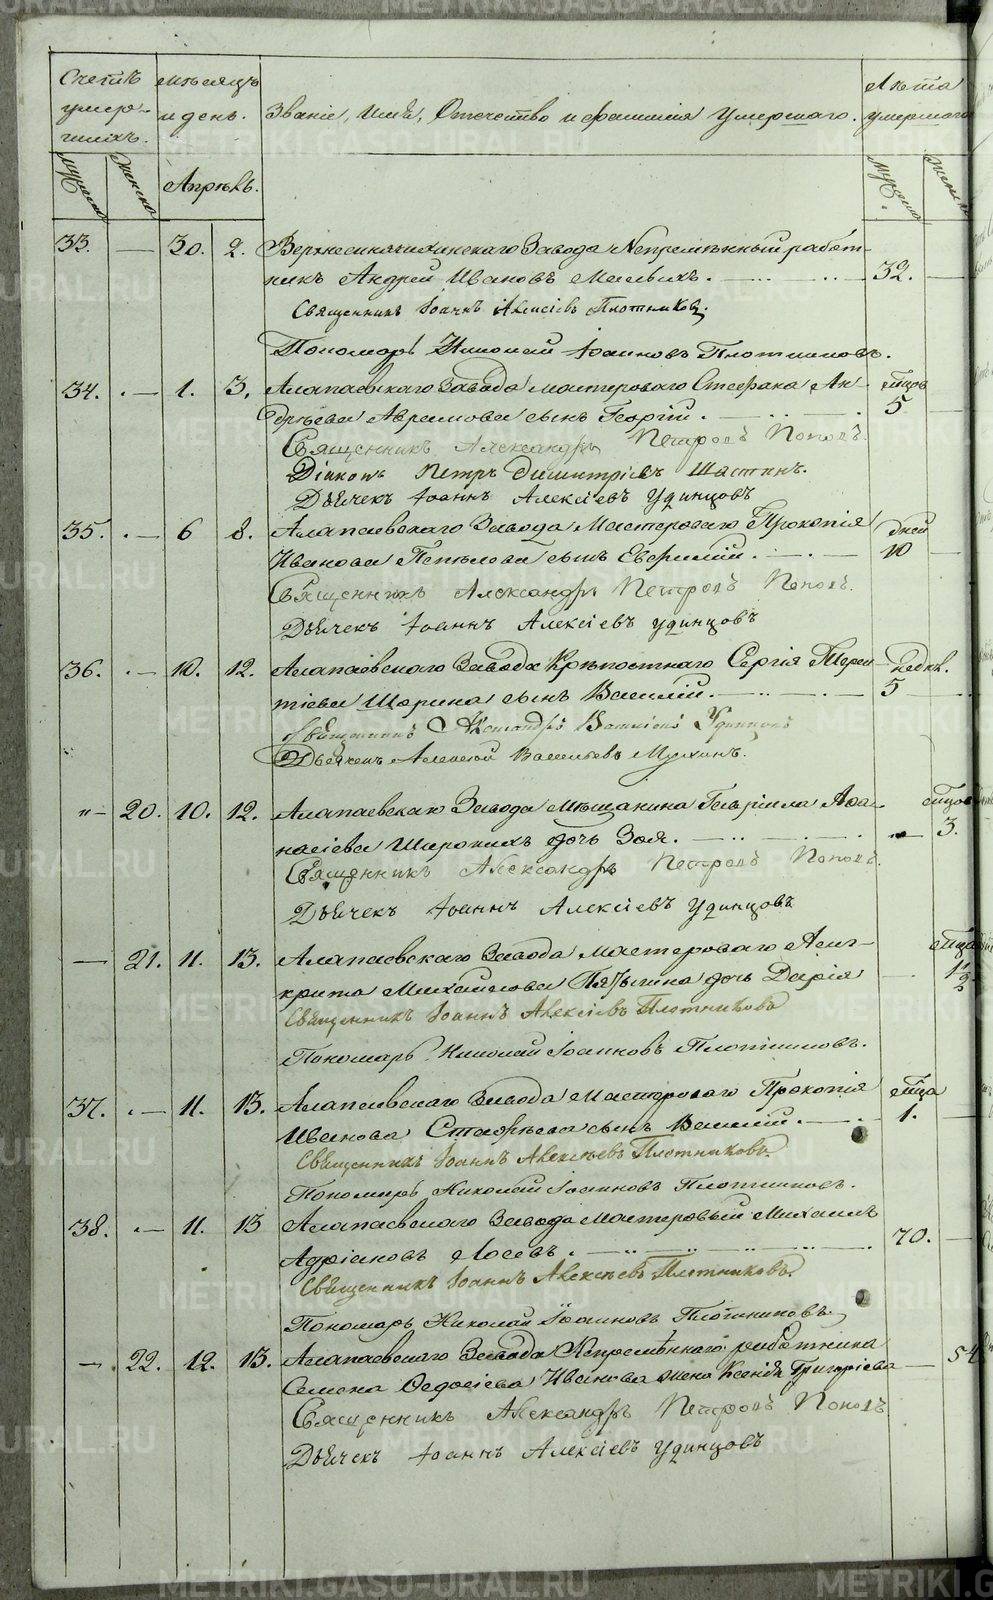 Счетъ умер- шихъ.
Мѣсяцъ и день.
Званіе, Имя, Отечество и фамилія Умершаго.
Лѣта умершаго
Мужеска Женска
Апрѣль.
Мужеска Женска
33. — 30. 2. Верхнесинячихинскаго Завода Непремѣнный работ-
никъ Андрей Ивановъ 32.
Священникъ Іоаннъ Алексіевъ Плотниковъ.
Пономарь Николай Іоанновъ Плотниковъ.
34. — 1. 3. Алапаевскаго Завода мастероваго Стефана Ан- мѣсцовъ
дрѣева Аврамова сынъ Георгій. 5
Священникъ Александръ Петровъ Поповъ.
Діаконъ Петръ Димитріевъ Шастинъ.
Дьячекъ Іоаннъ Алексіевъ Удинцовъ
35. — 6 8. Алапаевскаго Завода Мастероваго Прокопія дней
Иванова сынъ Евфимій. 10
Священникъ Александръ Петровъ Поповъ.
Дьячекъ Іоаннъ Алексіевъ Удинцовъ
36. — 10. 12. Алапаевскаго Завода Крѣпостнаго Сергія Терен- недѣл.
тіева Шарина сынъ Василій. 5
Священникъ Александръ Удинцовъ
Дьячекъ Алексѣй Васильевъ Мухинъ.
" — 20. 10. 12. Алапаевскаго Завода Мѣщанина Гавріила Афа- мѣсцов
насіева Широкихъ дочь Зоя. — 3.
Священникъ Александръ Петровъ Поповъ.
Дьячекъ Іоаннъ Алексіевъ Удинцовъ
— 21. 11. 13. Алапаевскаго Завода мастероваго Асин- мѣсца
крита Михайлова дочь Дарія 1 1/2
Священникъ Іоаннъ Алексіевъ Плотниковъ
Пономарь Николай Іоанновъ Плотниковъ.
37. — 11. 13. Алапаевскаго Завода Мастероваго Прокопія мѣсца
Иванова сынъ Василій. 1.
Священникъ Іоаннъ Алексѣевъ Плотниковъ.
Пономарь Николай Іоанновъ Плотниковъ.
38. — 11. 13 Алапаевскаго Завода Мастеровый Михаилъ
Адріановъ Лосевъ. 70. —
Священникъ Іоаннъ Алексѣевъ Плотниковъ.
Пономарь Николай Іоанновъ Плотниковъ.
— 22. 12. 13. Алапаевскаго Завода Непремѣннаго работника
Семена Ѳедосіева Иванова жена Ксенія Григоріева — 54
Священникъ Александръ Петровъ Поповъ
Дьячекъ Іоаннъ Алексіевъ Удинцовъ
METRIKI.GASO-URAL.RU